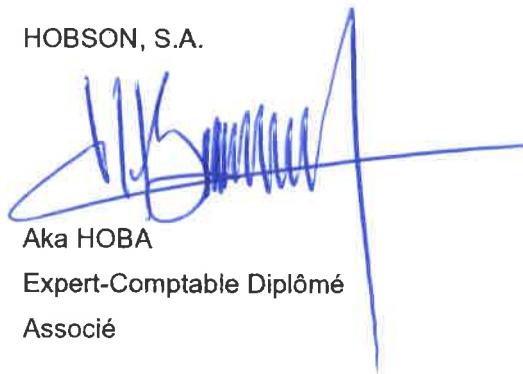 HOBSON, S.A.
Aka HOBA
Expert-Comptable Diplômé
Associé